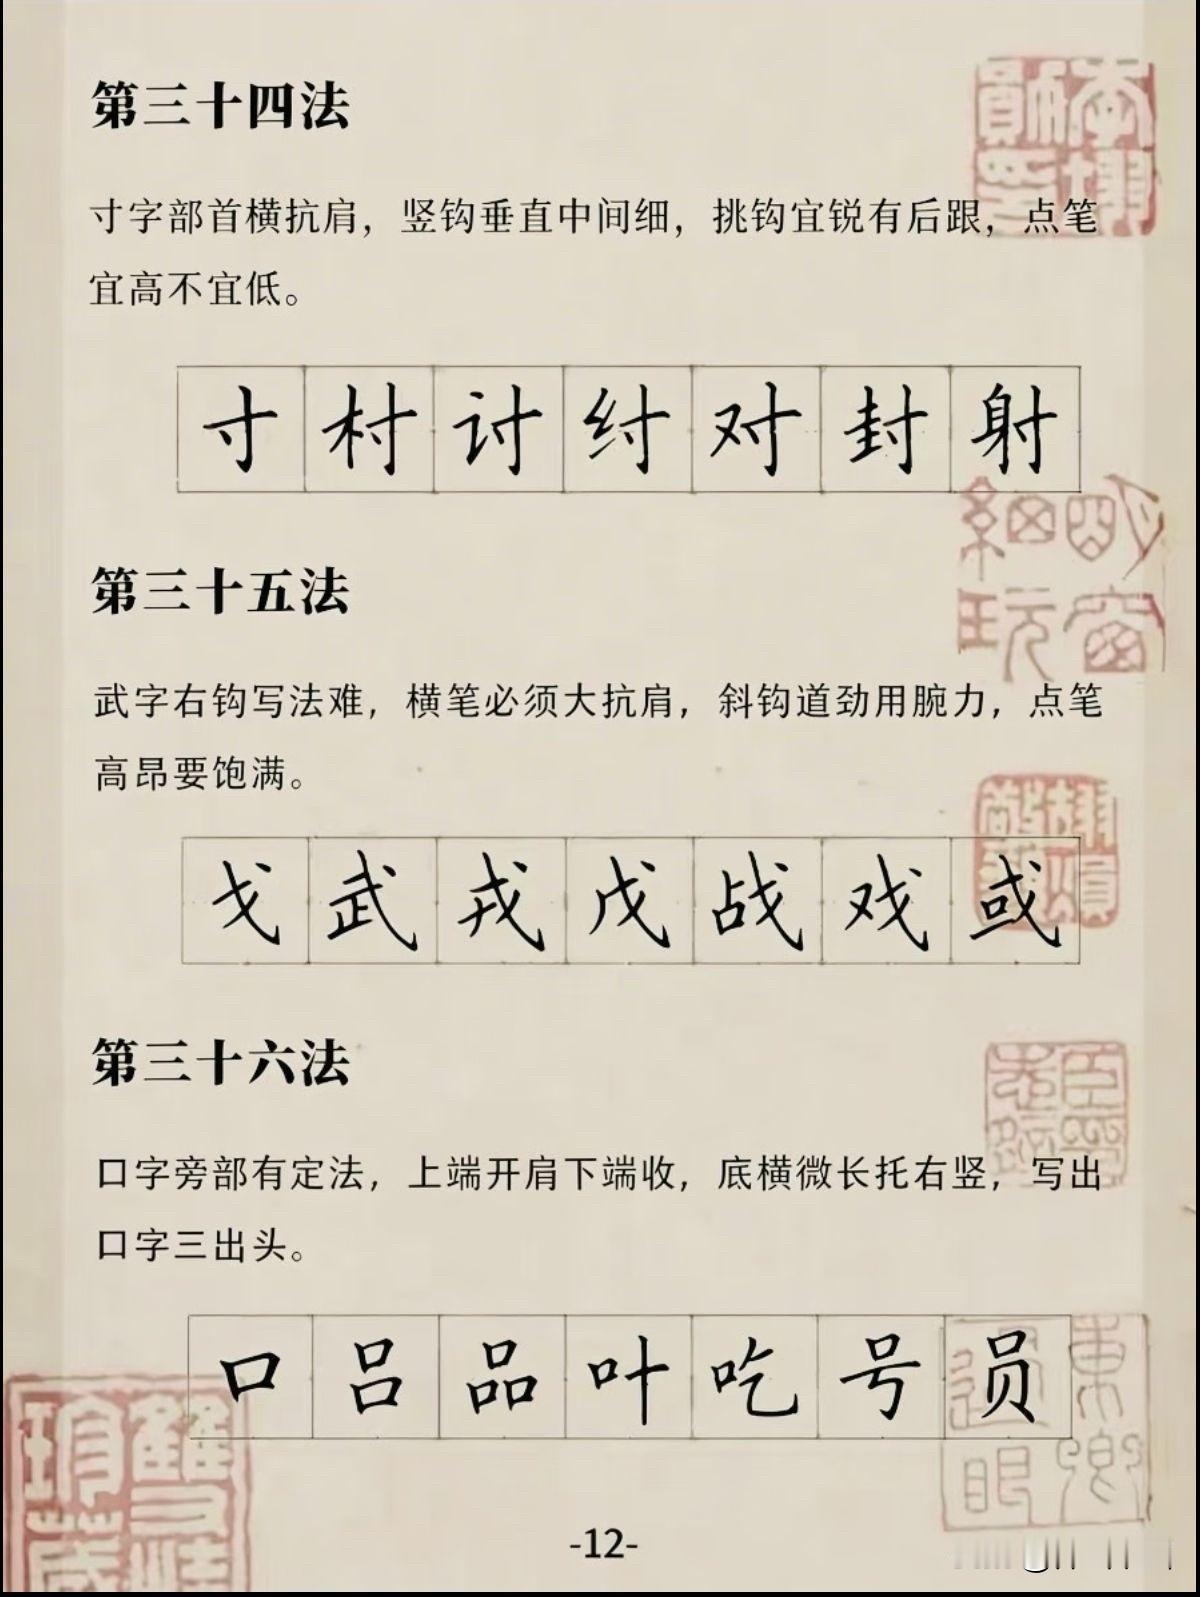 第三十四法
寸字部首横抗肩，竖钩垂直中间细，挑钩宜锐有后跟，点笔
宜高不宜低。
寸村讨纣对封射
第三十五法
武字右钩写法难，横笔必须大抗肩，斜钩道劲用腕力，点笔
高昂要饱满。
戈武戎戊战戏或
第三十六法
口字旁部有定法，上端开肩下端收，底横微长托右竖，写出
口字三出头。
口吕品叶吃号员
-12-